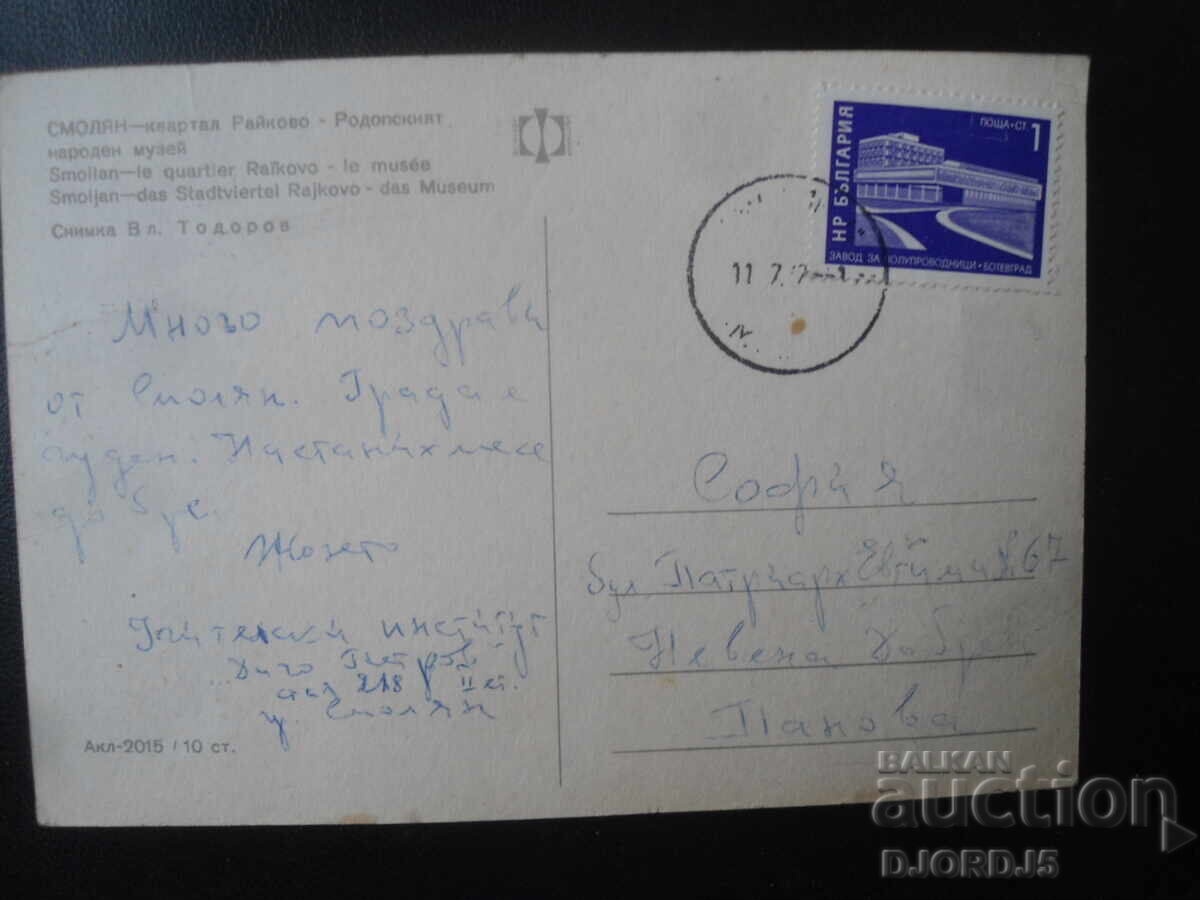 СМОЛЯН—квартал Райково - Родопският
народен музей
Smolian—le quartier Raïkovo - le musée
Smoljan—das Stadtviertel Rajkovo - das Museum
Снимка Вл. Тодоров
Много поздрави
от Смолян. Града е
чуден. Настаних ме се
Жозето
Учителски институт
Дичо Петров
стая 218 II ет.
гр. Смолян
Акл-2015 / 10 ст.
ПОЩА•СТ. 1
НР БЪЛГАРИЯ
ЗАВОД ЗА ПОЛУПРОВОДНИЦИ • БОТЕВГРАД
11 7.7
IV
София
бул. Патриарх Евтимий № 67
Невена
Панова
BALKAN
auction
DJORDJ5